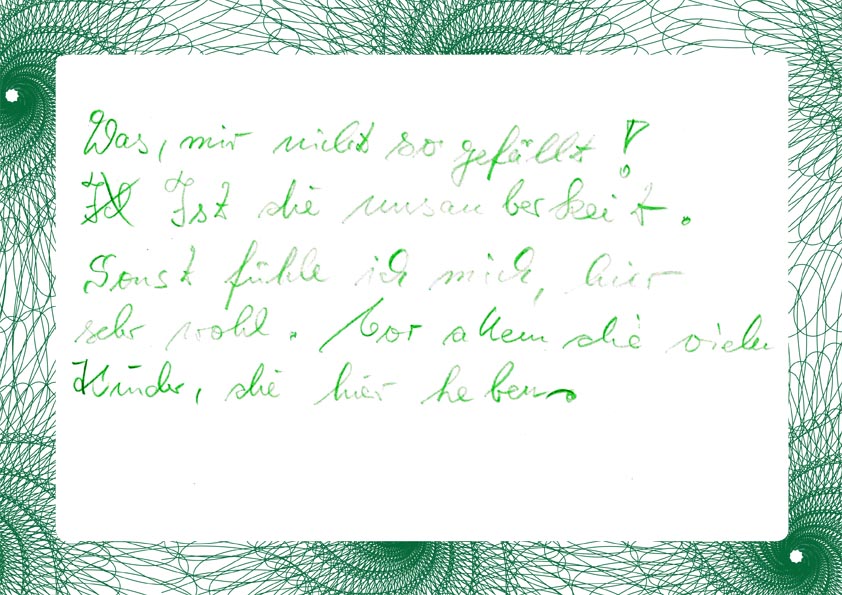 Was, mir nicht so gefällt!
Ist die unsauberkeit.
Sonst fühle ich mich, hier
sehr wohl. Vor allem die vielen
Kinder, die hier leben.